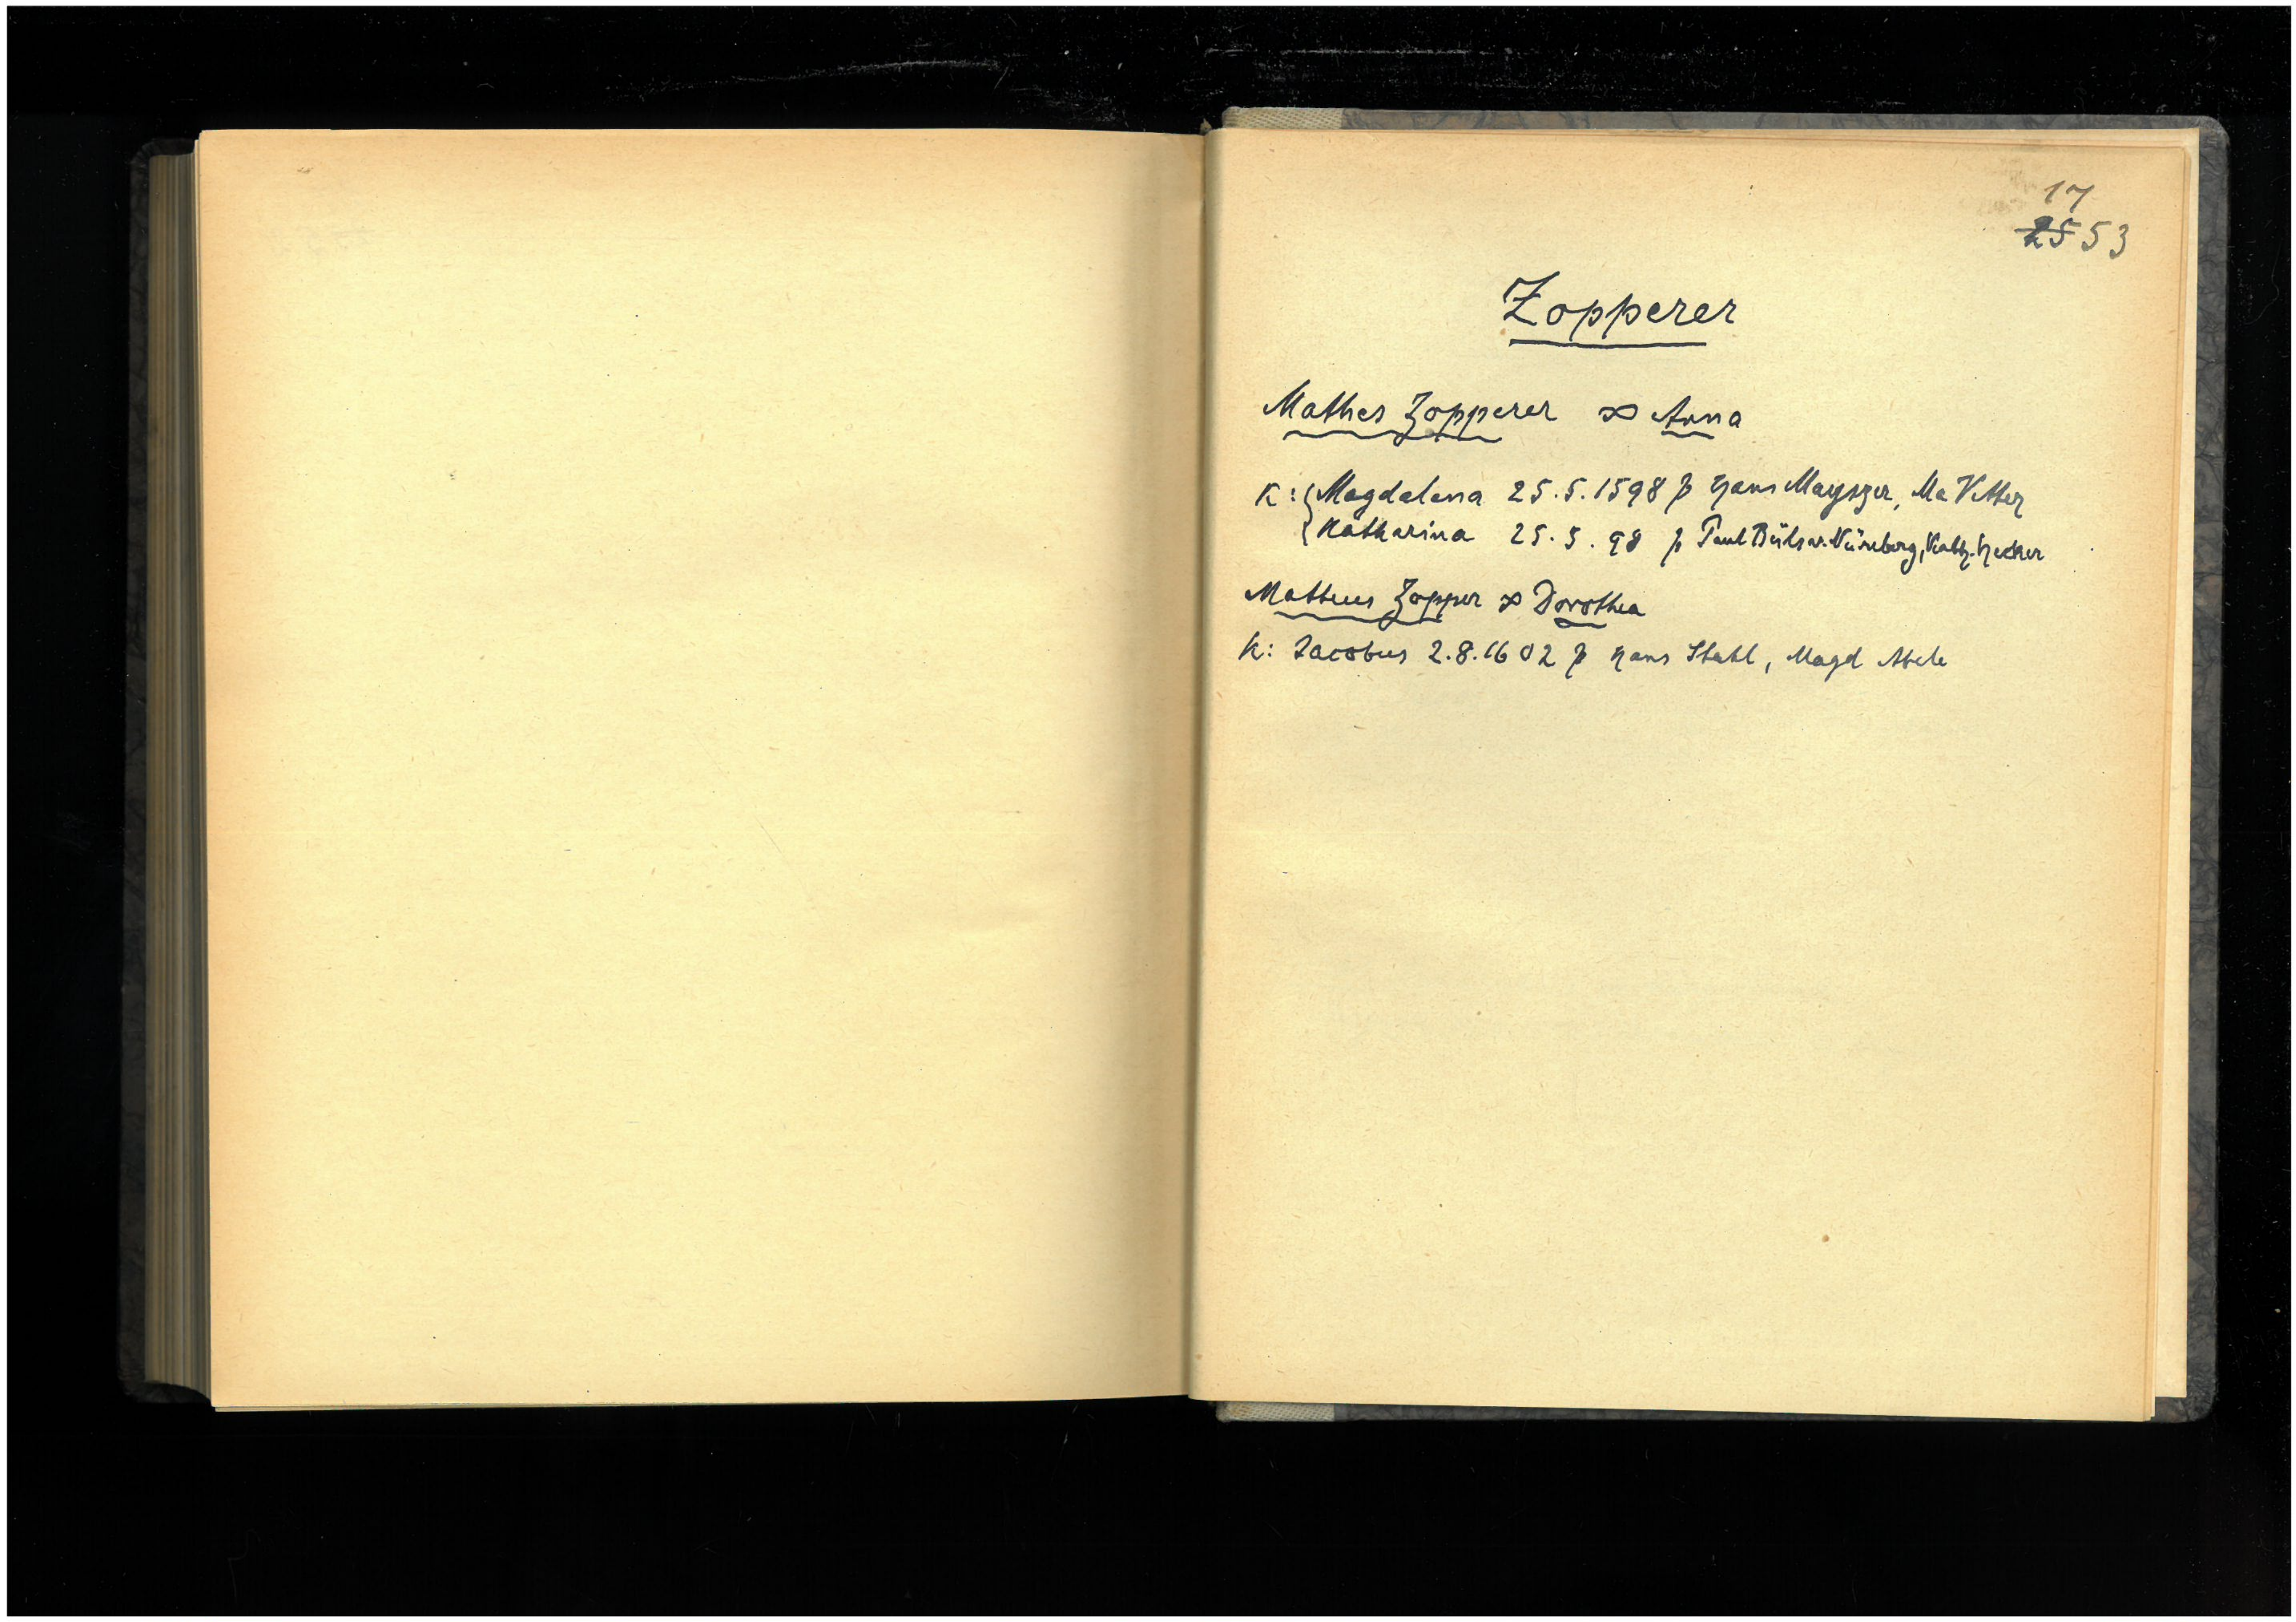 17
25 53
Zopperer
Mathes Zopperer ∞ Anna
K: Magdalena 25.5.1598 p Hans Mayszer, Ma Vetter
Katharina 25.5.98 p Paul v. Nürnberg, Kath. Hecker
Matheus Zopper ∞ Dorothea
K: Jacobus 2.8.1602 p Hans Stahl, Magd Abele